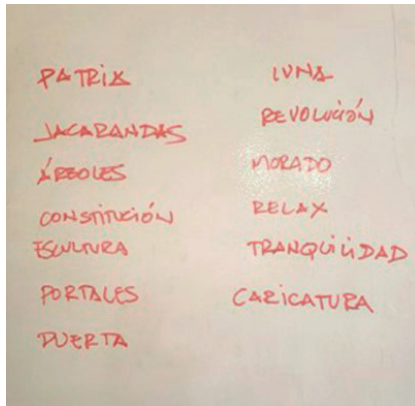 PATRIA
JACARANDAS
ÁRBOLES
CONSTITUCIÓN
ESCULTURA
PORTALES
PUERTA
LUNA
REVOLUCIÓN
MORADO
RELAX
TRANQUILIDAD
CARICATURA